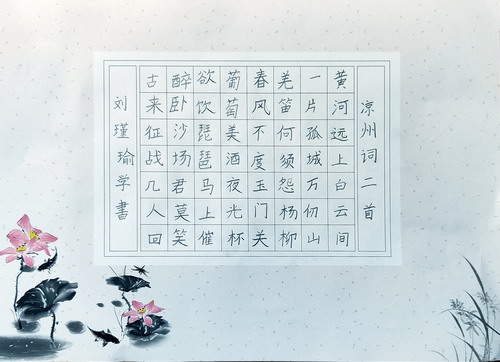 凉州词二首
黄河远上白云间
一片孤城万仞山
羌笛何须怨杨柳
春风不度玉门关
葡萄美酒夜光杯
欲饮琵琶马上催
醉卧沙场君莫笑
古来征战几人回
刘瑾瑜学書